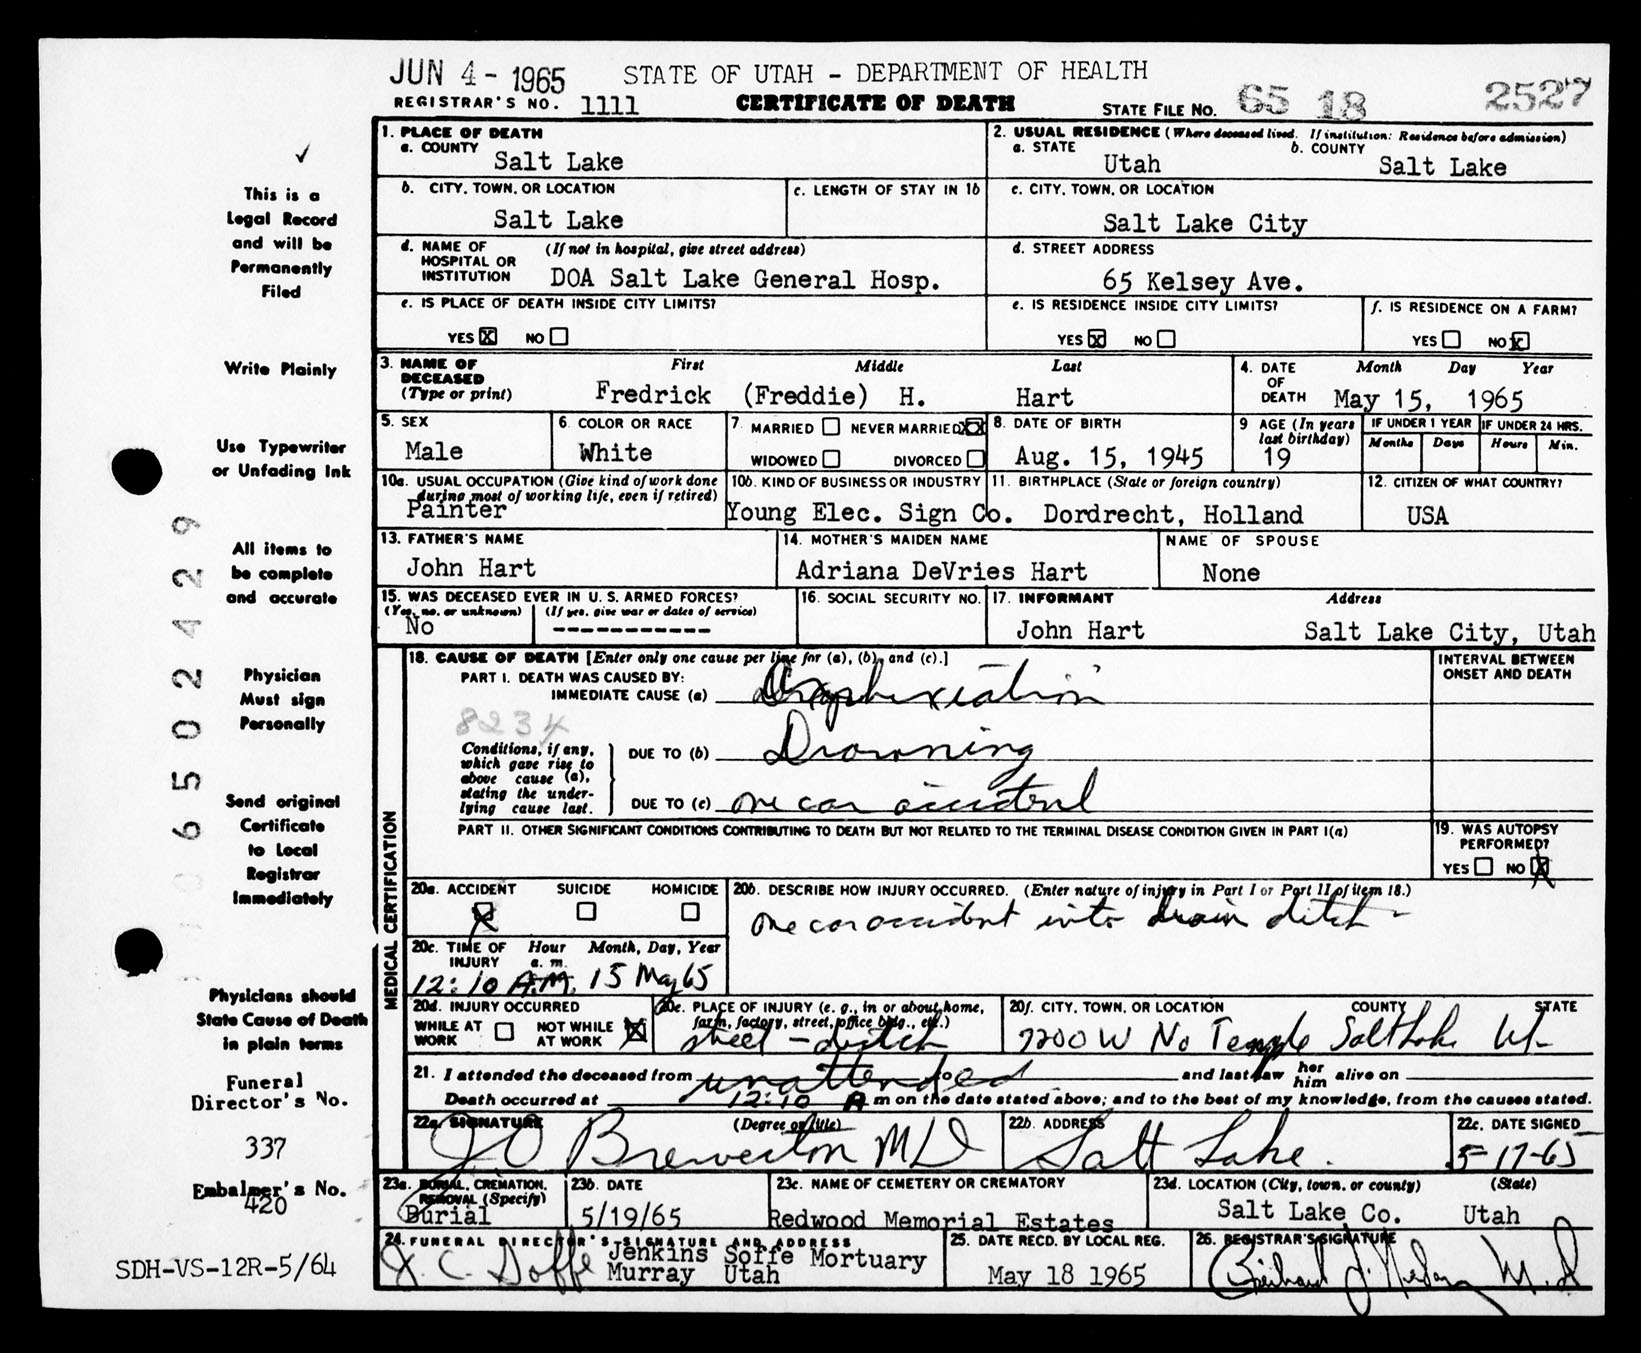 JUN 4 - 1965 STATE OF UTAH - DEPARTMENT OF HEALTH
REGISTRAR'S NO. 1111 CERTIFICATE OF DEATH STATE FILE NO. 65 18 2527
1. PLACE OF DEATH
a. COUNTY Salt Lake
2. USUAL RESIDENCE (Where deceased lived. If institution: Residence before admission)
a. STATE Utah b. COUNTY Salt Lake
b. CITY, TOWN, OR LOCATION Salt Lake
c. LENGTH OF STAY IN 1b
c. CITY, TOWN, OR LOCATION Salt Lake City
d. NAME OF HOSPITAL OR INSTITUTION (If not in hospital, give street address) DOA Salt Lake General Hosp.
d. STREET ADDRESS 65 Kelsey Ave.
e. IS PLACE OF DEATH INSIDE CITY LIMITS?
YES X NO
e. IS RESIDENCE INSIDE CITY LIMITS?
YES X NO
f. IS RESIDENCE ON A FARM?
YES NO X
3. NAME OF DECEASED (Type or print) First Middle Last
Fredrick (Freddie) H. Hart
4. DATE OF DEATH Month Day Year
May 15, 1965
5. SEX Male
6. COLOR OR RACE White
7. MARRIED NEVER MARRIED X
WIDOWED DIVORCED
8. DATE OF BIRTH Aug. 15, 1945
9 AGE (In years last birthday) 19
IF UNDER 1 YEAR Months Days
IF UNDER 24 HRS. Hours Min.
10a. USUAL OCCUPATION (Give kind of work done during most of working life, even if retired)
Painter
10b. KIND OF BUSINESS OR INDUSTRY
Young Elec. Sign Co.
11. BIRTHPLACE (State or foreign country)
Dordrecht, Holland
12. CITIZEN OF WHAT COUNTRY?
USA
13. FATHER'S NAME
John Hart
14. MOTHER'S MAIDEN NAME
Adriana DeVries Hart
NAME OF SPOUSE
None
15. WAS DECEASED EVER IN U. S. ARMED FORCES?
(Yes, no, or unknown) (If yes, give war or dates of service)
No -----------
16. SOCIAL SECURITY NO.
17. INFORMANT Address
John Hart Salt Lake City, Utah
MEDICAL CERTIFICATION
18. CAUSE OF DEATH [Enter only one cause per line for (a), (b), and (c).]
PART I. DEATH WAS CAUSED BY:
IMMEDIATE CAUSE (a) Asphyxiation
INTERVAL BETWEEN ONSET AND DEATH
8234
Conditions, if any, which gave rise to above cause (a), stating the under-lying cause last.
DUE TO (b) Drowning
DUE TO (c) one car accident
PART II. OTHER SIGNIFICANT CONDITIONS CONTRIBUTING TO DEATH BUT NOT RELATED TO THE TERMINAL DISEASE CONDITION GIVEN IN PART I(a)
19. WAS AUTOPSY PERFORMED?
YES NO X
20a. ACCIDENT SUICIDE HOMICIDE
X
20b. DESCRIBE HOW INJURY OCCURRED. (Enter nature of injury in Part I or Part II of item 18.)
one car accident into drain ditch -
20c. TIME OF INJURY Hour a. m. Month, Day, Year
12:10 A.M. 15 May 65
20d. INJURY OCCURRED
WHILE AT WORK NOT WHILE AT WORK X
20e. PLACE OF INJURY (e. g., in or about home, farm, factory, street, office bldg., etc.)
street - ditch
20f. CITY, TOWN, OR LOCATION COUNTY STATE
7200 W No Temple Salt Lake Ut-
21. I attended the deceased from unattended to and last saw her him alive on
Death occurred at 12:10 A m on the date stated above; and to the best of my knowledge, from the causes stated.
22a. SIGNATURE (Degree or title)
J O Brewerton MD
22b. ADDRESS
Salt Lake.
22c. DATE SIGNED
5-17-65
23a. BURIAL, CREMATION, REMOVAL (Specify)
Burial
23b. DATE
5/19/65
23c. NAME OF CEMETERY OR CREMATORY
Redwood Memorial Estates
23d. LOCATION (City, town, or county) (State)
Salt Lake Co. Utah
24. FUNERAL DIRECTOR'S SIGNATURE AND ADDRESS
Jenkins Soffe Mortuary
Murray Utah
J. C. Soffe
25. DATE RECD. BY LOCAL REG.
May 18 1965
26. REGISTRAR'S SIGNATURE
M. D
This is a
Legal Record
and will be
Permanently
Filed
Write Plainly
Use Typewriter
or Unfading Ink
All items to
be complete
and accurate
Physician
Must sign
Personally
Send original
Certificate
to Local
Registrar
Immediately
Physicians should
State Cause of Death
in plain terms
Funeral
Director's No.
337
Embalmer's No.
420
SDH-VS-12R-5/64
0 6 5 0 2 4 2 9